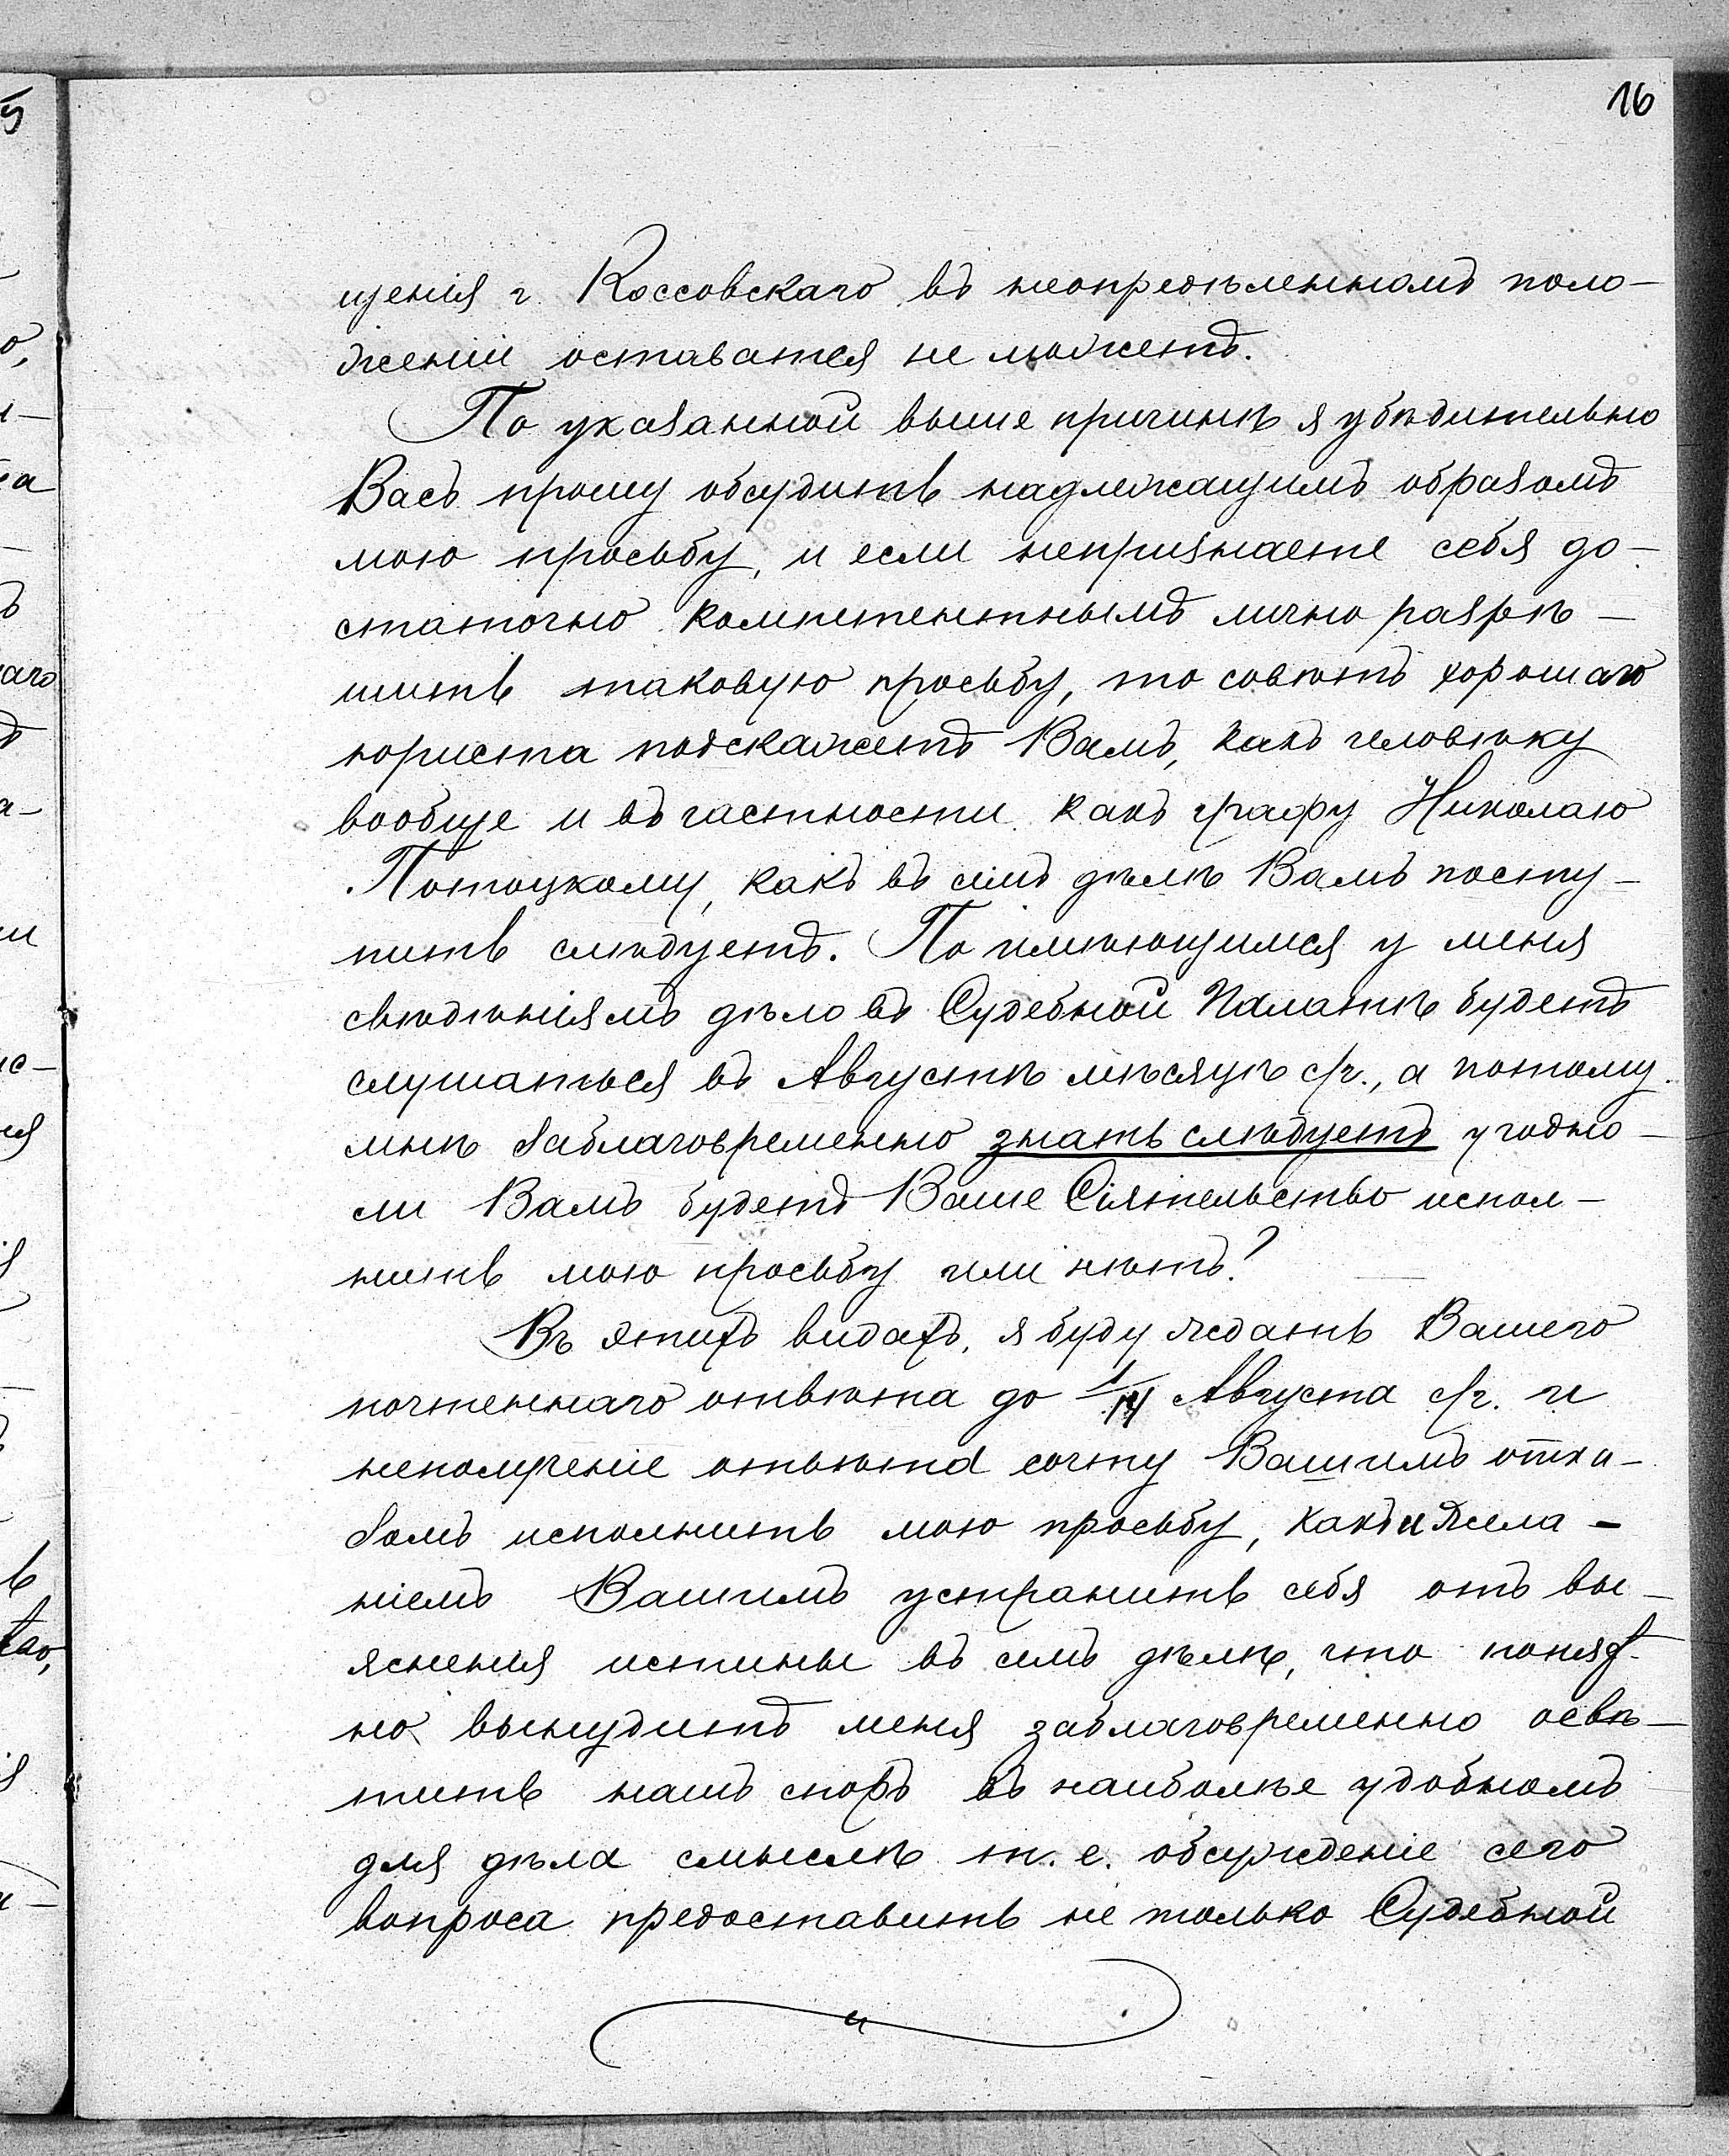 16
щенія г. Коссовскаго въ неопредѣленномъ поло-
женіи оставатся не можетъ.
По указанной выше причинѣ я убѣдительно
Васъ прошу обсудить надлежащимъ образомъ
мою просьбу, и если непризнаете себя до-
статочно компетентнымъ лично разрѣ-
шить таковую просьбу, то совѣтъ хорошаго
юриста подскажетъ Вамъ, какъ человѣку
вообще и въ частности какъ графу Николаю
Потоцкому, какъ въ сімъ дѣлѣ Вамъ посту-
пить слѣдуетъ. По имѣющимся у меня
свѣдѣніямъ дѣло въ Судебной Палатѣ будетъ
слушаться въ Августѣ мѣсяцѣ с/г., а потому
мнѣ заблаговременно знать слѣдуетъ угодно-
ли Вамъ будетъ Ваше Сіятельство испол-
нить мою просьбу или нѣтъ?
Въ этихъ видахъ, я буду ждать Вашего
почтеннаго отвѣта до 1/14 Августа с/г. и
неполученіе отвѣта сочту Вашимъ отка-
зомъ исполнить мою просьбу, какъ и жела-
ніемъ Вашимъ устранить себя отъ вы-
ясненія истины въ семъ дѣлѣ, что понят-
но вынудитъ меня заблаговременно освѣ-
тить нашъ споръ въ наиболѣе удобномъ
для дѣла смыслѣ т. е. обсужденіе сего
вопроса предоставить не только Судебной